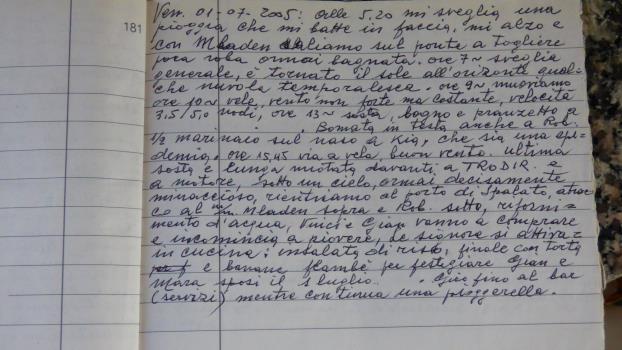 Ven. 01-07-2005: Alle 5.20 mi sveglia una
181
pioggia che mi batte in faccia, mi alzo e
con Mladen saliamo sul ponte a togliere
poca roba ormai bagnata. ore 7~ sveglia
generale, è tornato il sole all'orizonte qual=
che nuvola temporalesca. ore 9~ mugniamo
ore 10~ vele, vento non forte ma costante, velocità
3,5/5,0 nodi, ore 13~ sosta, bagno e pranzetto a
. Bomata in testa anche a Rob.
1/2 marinaio sul naso a Kia, che sia una epi=
demia. ore 15,45 via a vela, buon vento. ultima
sosta e lunga nuotata davanti a TRODIR. e
a motore, sotto un cielo, ormai decisamente
minaccioso, rientriamo al porto di Spalato, attrac=
co al Mladen sopra e Rob. sotto, riforni=
mento d'acqua, Vinci e Gian vanno a comprare
e incomincia a piovere, le signore si attiva=
in cucina: insalata di riso, finale con torta
e banane flambé per festegiare Gian e
Mara sposi il 1 luglio. . Giù fino al bar
(servizi) mentre continua una pioggerella.